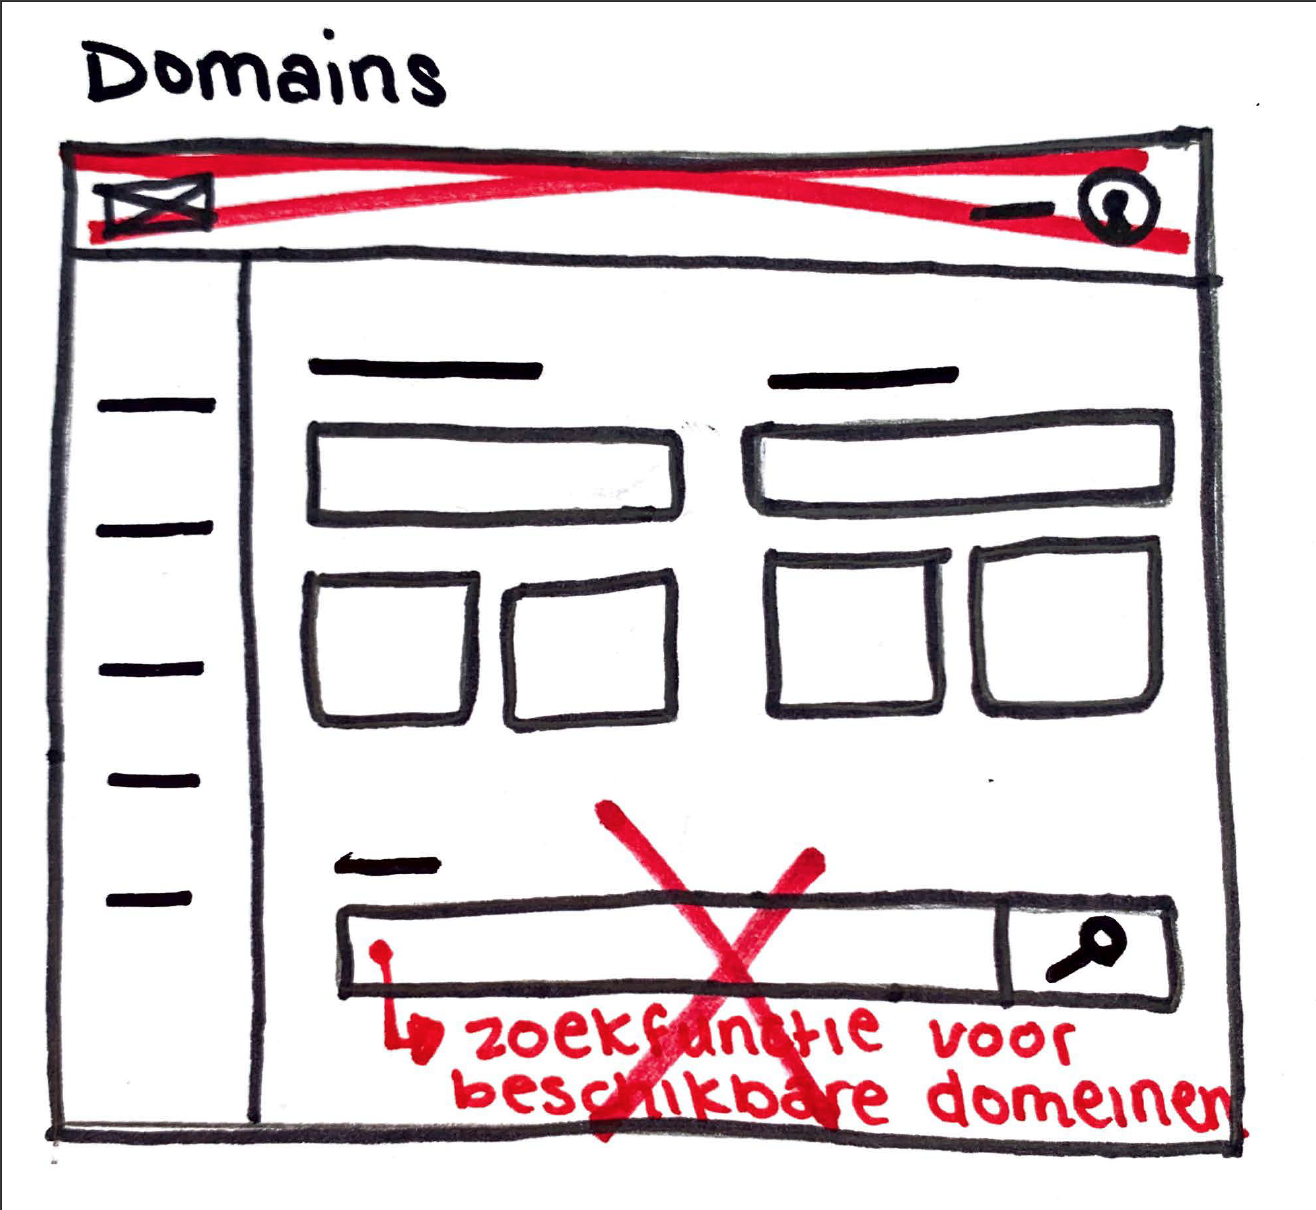 Domains
zoekfunctie voor
beschikbare domeinen